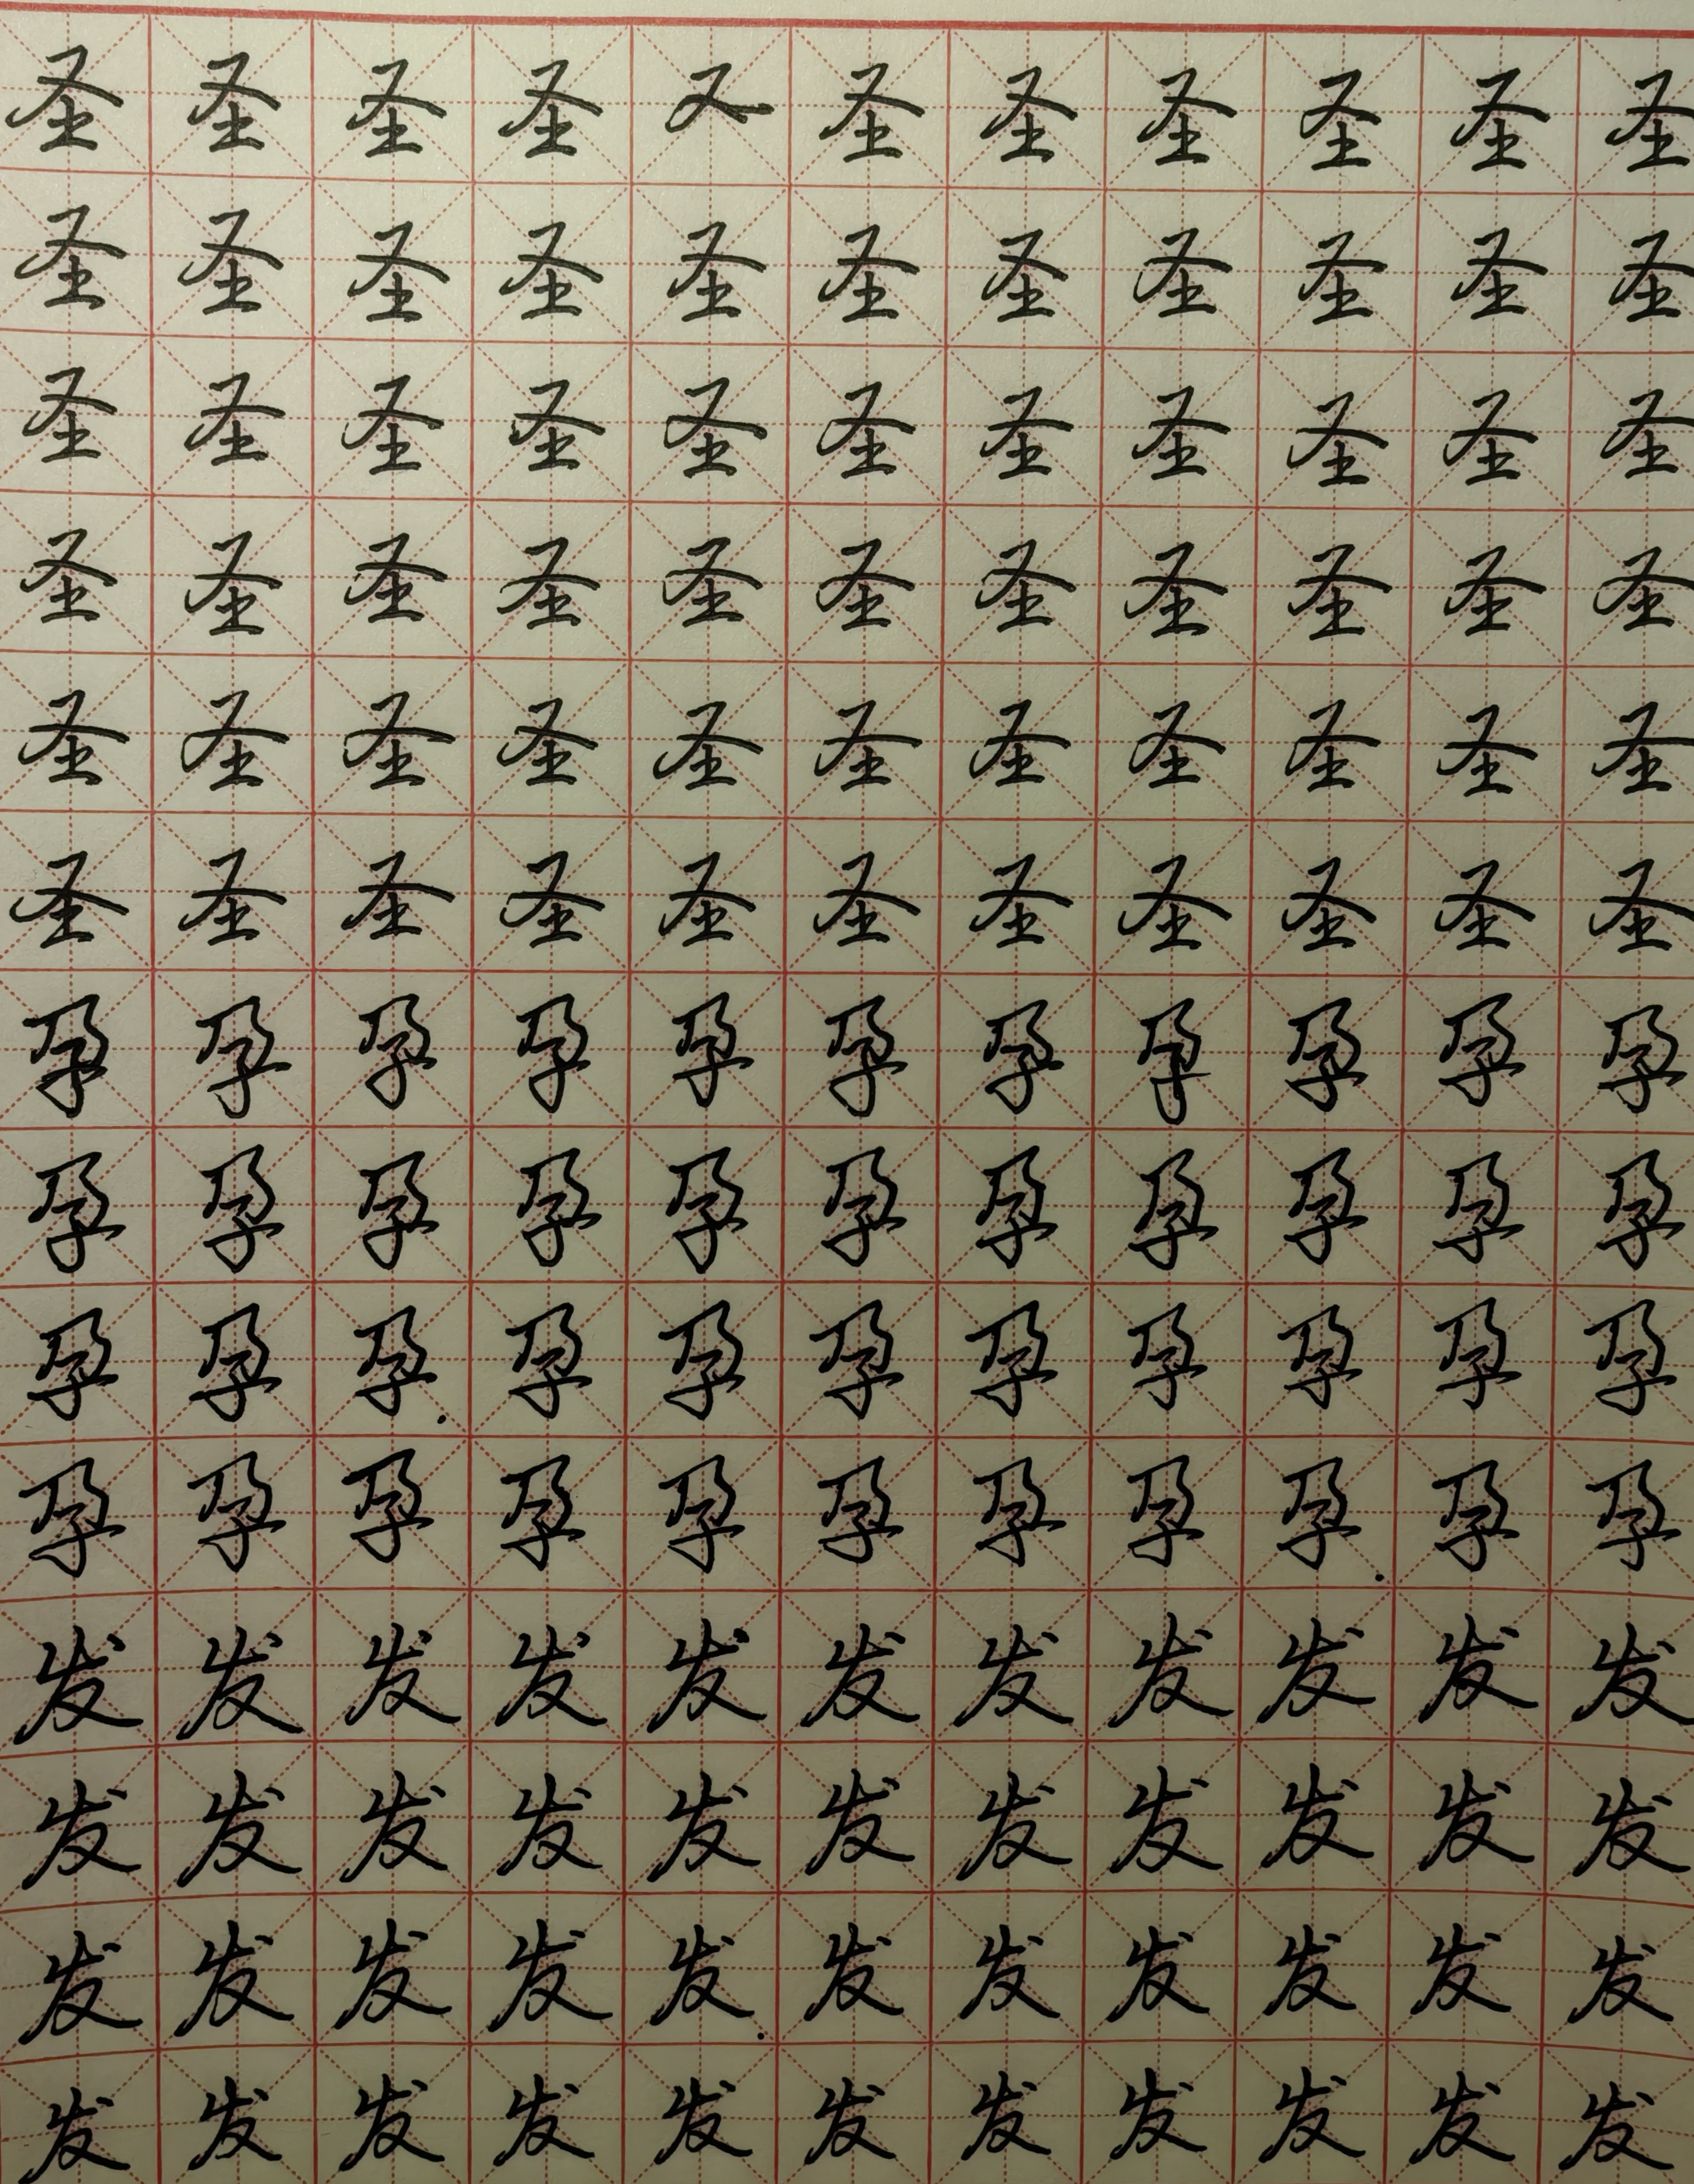 圣圣圣圣又圣圣圣圣圣圣
圣圣圣圣圣圣圣圣圣圣圣
圣圣圣圣圣圣圣圣圣圣圣
圣圣圣圣圣圣圣圣圣圣圣
圣圣圣圣圣圣圣圣圣圣圣
圣圣圣圣圣圣圣圣圣圣圣
孕孕孕孕孕孕孕孕孕孕孕
孕孕孕孕孕孕孕孕孕孕孕
孕孕孕孕孕孕孕孕孕孕孕
孕孕孕孕孕孕孕孕孕孕孕
发发发发发发发发发发发
发发发发发发发发发发发
发发发发发发发发发发发
发发发发发发发发发发发